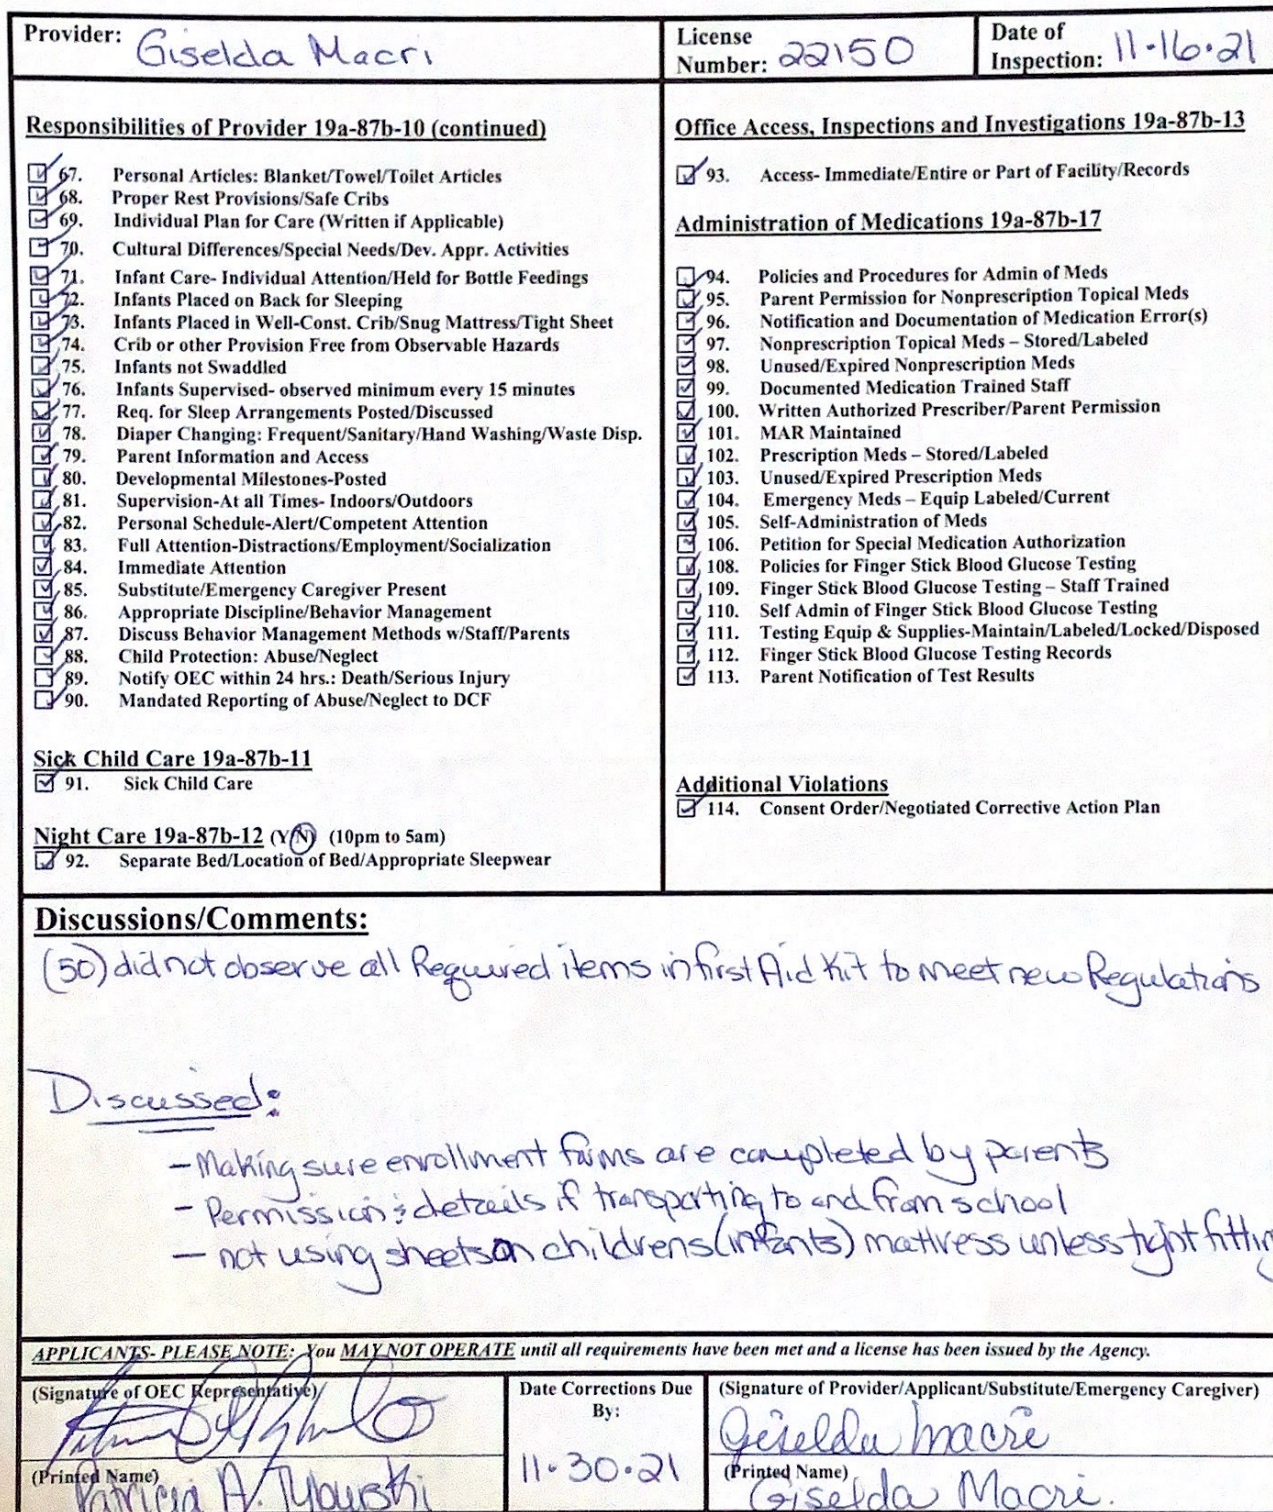 Provider: Giselda Macri
License Number: 22150
Date of Inspection: 11·16·21
Responsibilities of Provider 19a-87b-10 (continued)
67. Personal Articles: Blanket/Towel/Toilet Articles
68. Proper Rest Provisions/Safe Cribs
69. Individual Plan for Care (Written if Applicable)
70. Cultural Differences/Special Needs/Dev. Appr. Activities
71. Infant Care- Individual Attention/Held for Bottle Feedings
72. Infants Placed on Back for Sleeping
73. Infants Placed in Well-Const. Crib/Snug Mattress/Tight Sheet
74. Crib or other Provision Free from Observable Hazards
75. Infants not Swaddled
76. Infants Supervised- observed minimum every 15 minutes
77. Req. for Sleep Arrangements Posted/Discussed
78. Diaper Changing: Frequent/Sanitary/Hand Washing/Waste Disp.
79. Parent Information and Access
80. Developmental Milestones-Posted
81. Supervision-At all Times- Indoors/Outdoors
82. Personal Schedule-Alert/Competent Attention
83. Full Attention-Distractions/Employment/Socialization
84. Immediate Attention
85. Substitute/Emergency Caregiver Present
86. Appropriate Discipline/Behavior Management
87. Discuss Behavior Management Methods w/Staff/Parents
88. Child Protection: Abuse/Neglect
89. Notify OEC within 24 hrs.: Death/Serious Injury
90. Mandated Reporting of Abuse/Neglect to DCF
Sick Child Care 19a-87b-11
91. Sick Child Care
Night Care 19a-87b-12 (Y/N) (10pm to 5am)
92. Separate Bed/Location of Bed/Appropriate Sleepwear
Office Access, Inspections and Investigations 19a-87b-13
93. Access- Immediate/Entire or Part of Facility/Records
Administration of Medications 19a-87b-17
94. Policies and Procedures for Admin of Meds
95. Parent Permission for Nonprescription Topical Meds
96. Notification and Documentation of Medication Error(s)
97. Nonprescription Topical Meds – Stored/Labeled
98. Unused/Expired Nonprescription Meds
99. Documented Medication Trained Staff
100. Written Authorized Prescriber/Parent Permission
101. MAR Maintained
102. Prescription Meds – Stored/Labeled
103. Unused/Expired Prescription Meds
104. Emergency Meds – Equip Labeled/Current
105. Self-Administration of Meds
106. Petition for Special Medication Authorization
108. Policies for Finger Stick Blood Glucose Testing
109. Finger Stick Blood Glucose Testing – Staff Trained
110. Self Admin of Finger Stick Blood Glucose Testing
111. Testing Equip & Supplies-Maintain/Labeled/Locked/Disposed
112. Finger Stick Blood Glucose Testing Records
113. Parent Notification of Test Results
Additional Violations
114. Consent Order/Negotiated Corrective Action Plan
Discussions/Comments:
(50) did not observe all Required items in first Aid Kit to meet new Regulations
Discussed:
- Making sure enrollment forms are completed by parents
- Permission & details if transporting to and from school
- not using sheets on childrens (infants) mattress unless tight fitting
APPLICANTS- PLEASE NOTE: You MAY NOT OPERATE until all requirements have been met and a license has been issued by the Agency.
(Signature of OEC Representative)
(Printed Name)
Patricia A.
Date Corrections Due
By:
11·30·21
(Signature of Provider/Applicant/Substitute/Emergency Caregiver)
Giselda Macri
(Printed Name)
Giselda Macri.